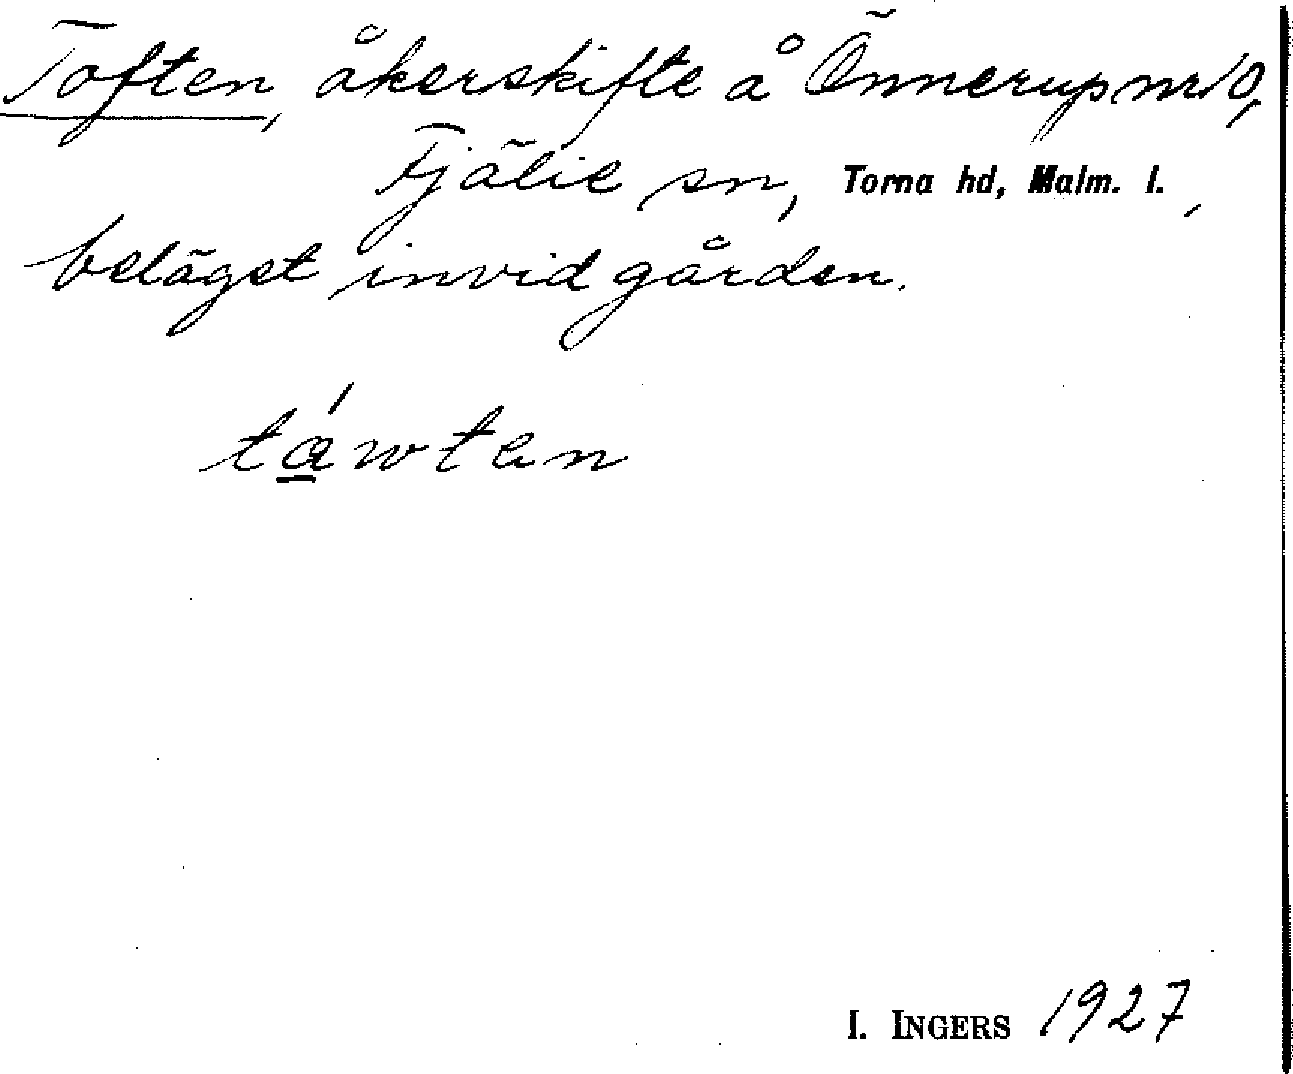 Toften, åkerskifte å Önnerup nr 10,
Fjälie sn, Torna hd, Malm. l.,
beläget invid gården.
táwten
I. INGERS 1927